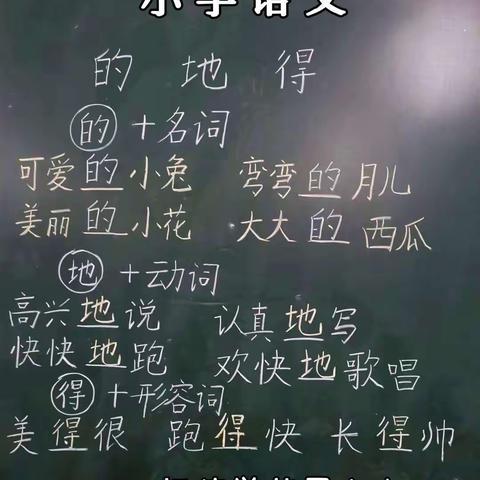 小学语文
的 地 得
的+名词
可爱的小兔 弯弯的月儿
美丽的小花 大大的西瓜
地+动词
高兴地说 认真地写
快快地跑 欢快地歌唱
得+形容词
美得很 跑得快 长得帅